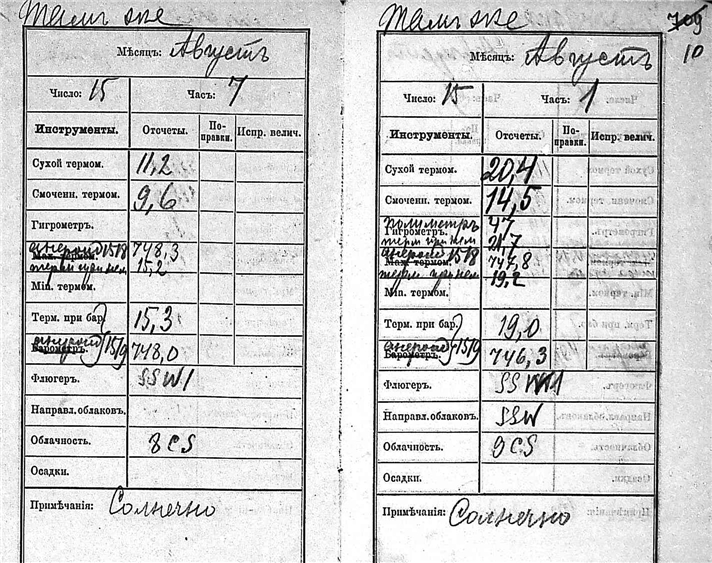 Тамъ же
Мѣсяцъ: Августъ
Число: 15 Часъ: 7
Инструменты. Отсчеты. По-правки. Испр. велич.
Сухой термом. 11,2
Смоченн. термом. 9,6
Гигрометръ.
анероид 1518 748,3
Мах. термом.
терм при нем 15,2
Min. термом.
Терм. при бар. 15,3
анероид 1519 748,0
Барометръ.
Флюгеръ. SSW1
Направл. облаковъ.
Облачность. 8 CS
Осадки.
Примѣчанія: Солнечно
Тамъ же 709
10
Мѣсяцъ: Августъ
Число: 15 Часъ: 1
Инструменты. Отсчеты. По-правки. Испр. велич.
Сухой термом. 20,4
Смоченн. термом. 14,5
полиметръ 47
Гигрометръ.
терм при нем
анероид 1518 747,8
Мах. термом.
терм при нем 19,2
Min. термом.
Терм. при бар. 19,0
анероид 1519 746,3
Барометръ.
Флюгеръ. SSW1
Направл. облаковъ. SSW
Облачность. 9 CS
Осадки.
Примѣчанія: Солнечно